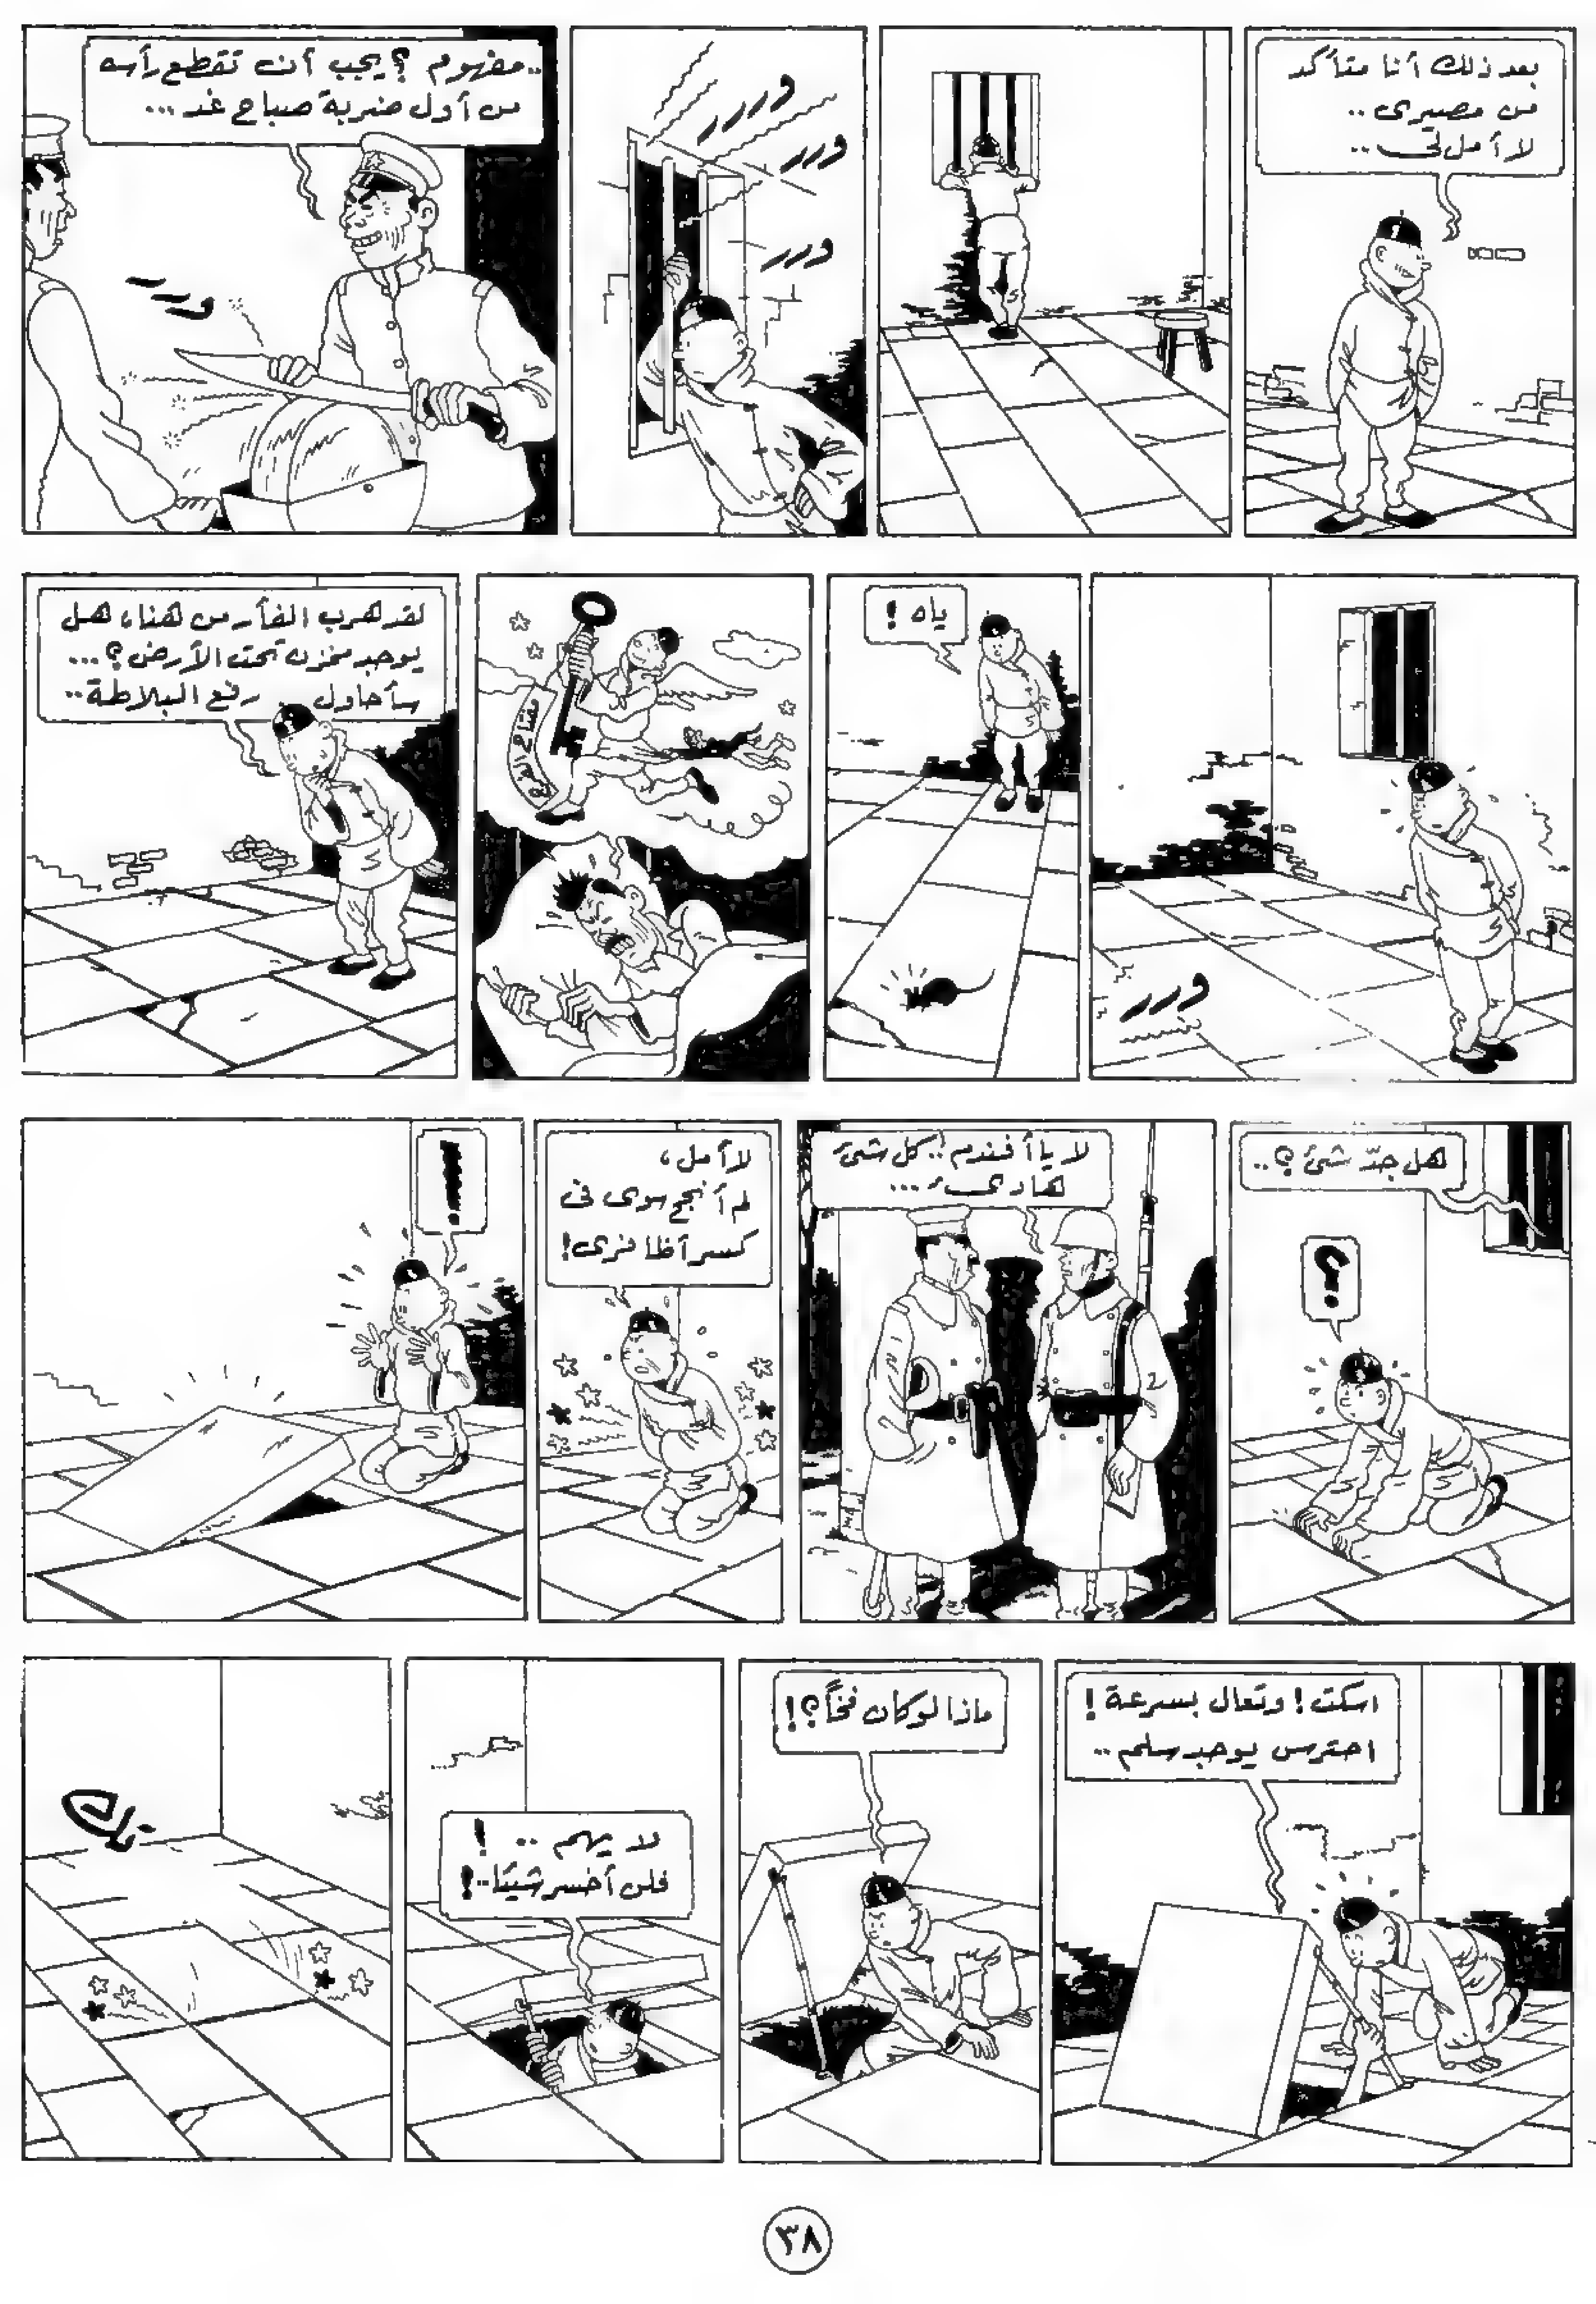 بعد ذلك أنا متأكد
من مصيرى ..
لا أمل لى ..
وررر
ورر
ورر
.. مفهوم ؟ يجب أن تقطع رأسه
من أول ضربة صباح غد ...
ورر
ورر
ياه !
مفتاح
لقد هرب الفأر من هنا، هل
يوجد مخزن تحت الأرض ؟ ...
سأحاول رفع البلاطة ..
هل جدّ شئ ؟ ..
؟
لا يا أفندم !.. كل شئ
هادىء ...
لا أمل ،
لم أنجح سوى فى
كسر أظافرى !
!
اسكت ! وتعال بسرعة !
احترس يوجد سلم ..
ماذا لو كان فخاً ؟!
لا يهم .. !
فلن أخسر شيئا .. !
تك
٣٨